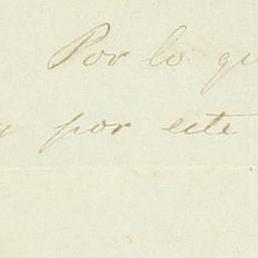 Por lo qu
y por este